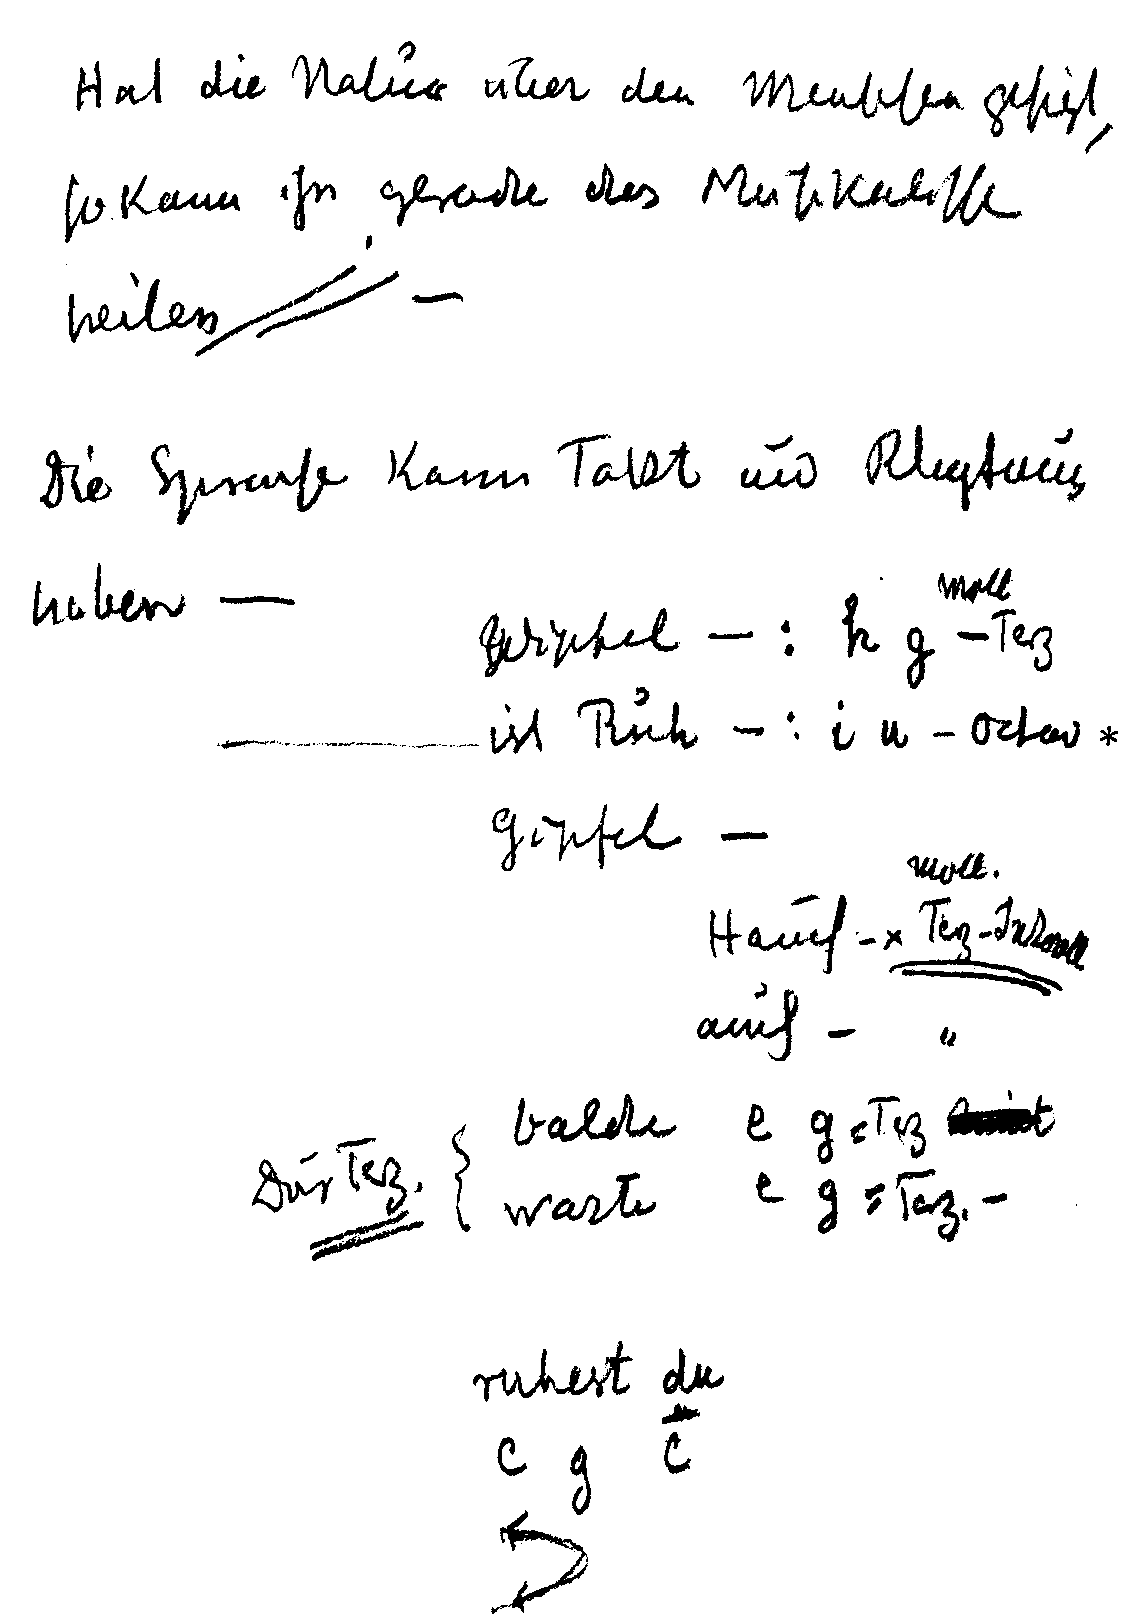 Hat die Natur über den Menschen gesiegt,
so kann ihn gerade das Musikalische
heilen –
Die Sprache kann Takt und Rhythmus
haben —
moll
Wipfel – : h g – Terz
ist Ruh – : i u – Octav *
Gipfel –
moll.
Hauch – x Terz-Intervall
auch – "
balde e g = Terz
Dur Terz. {
warte e g = Terz. –
ruhest du
c g c̄